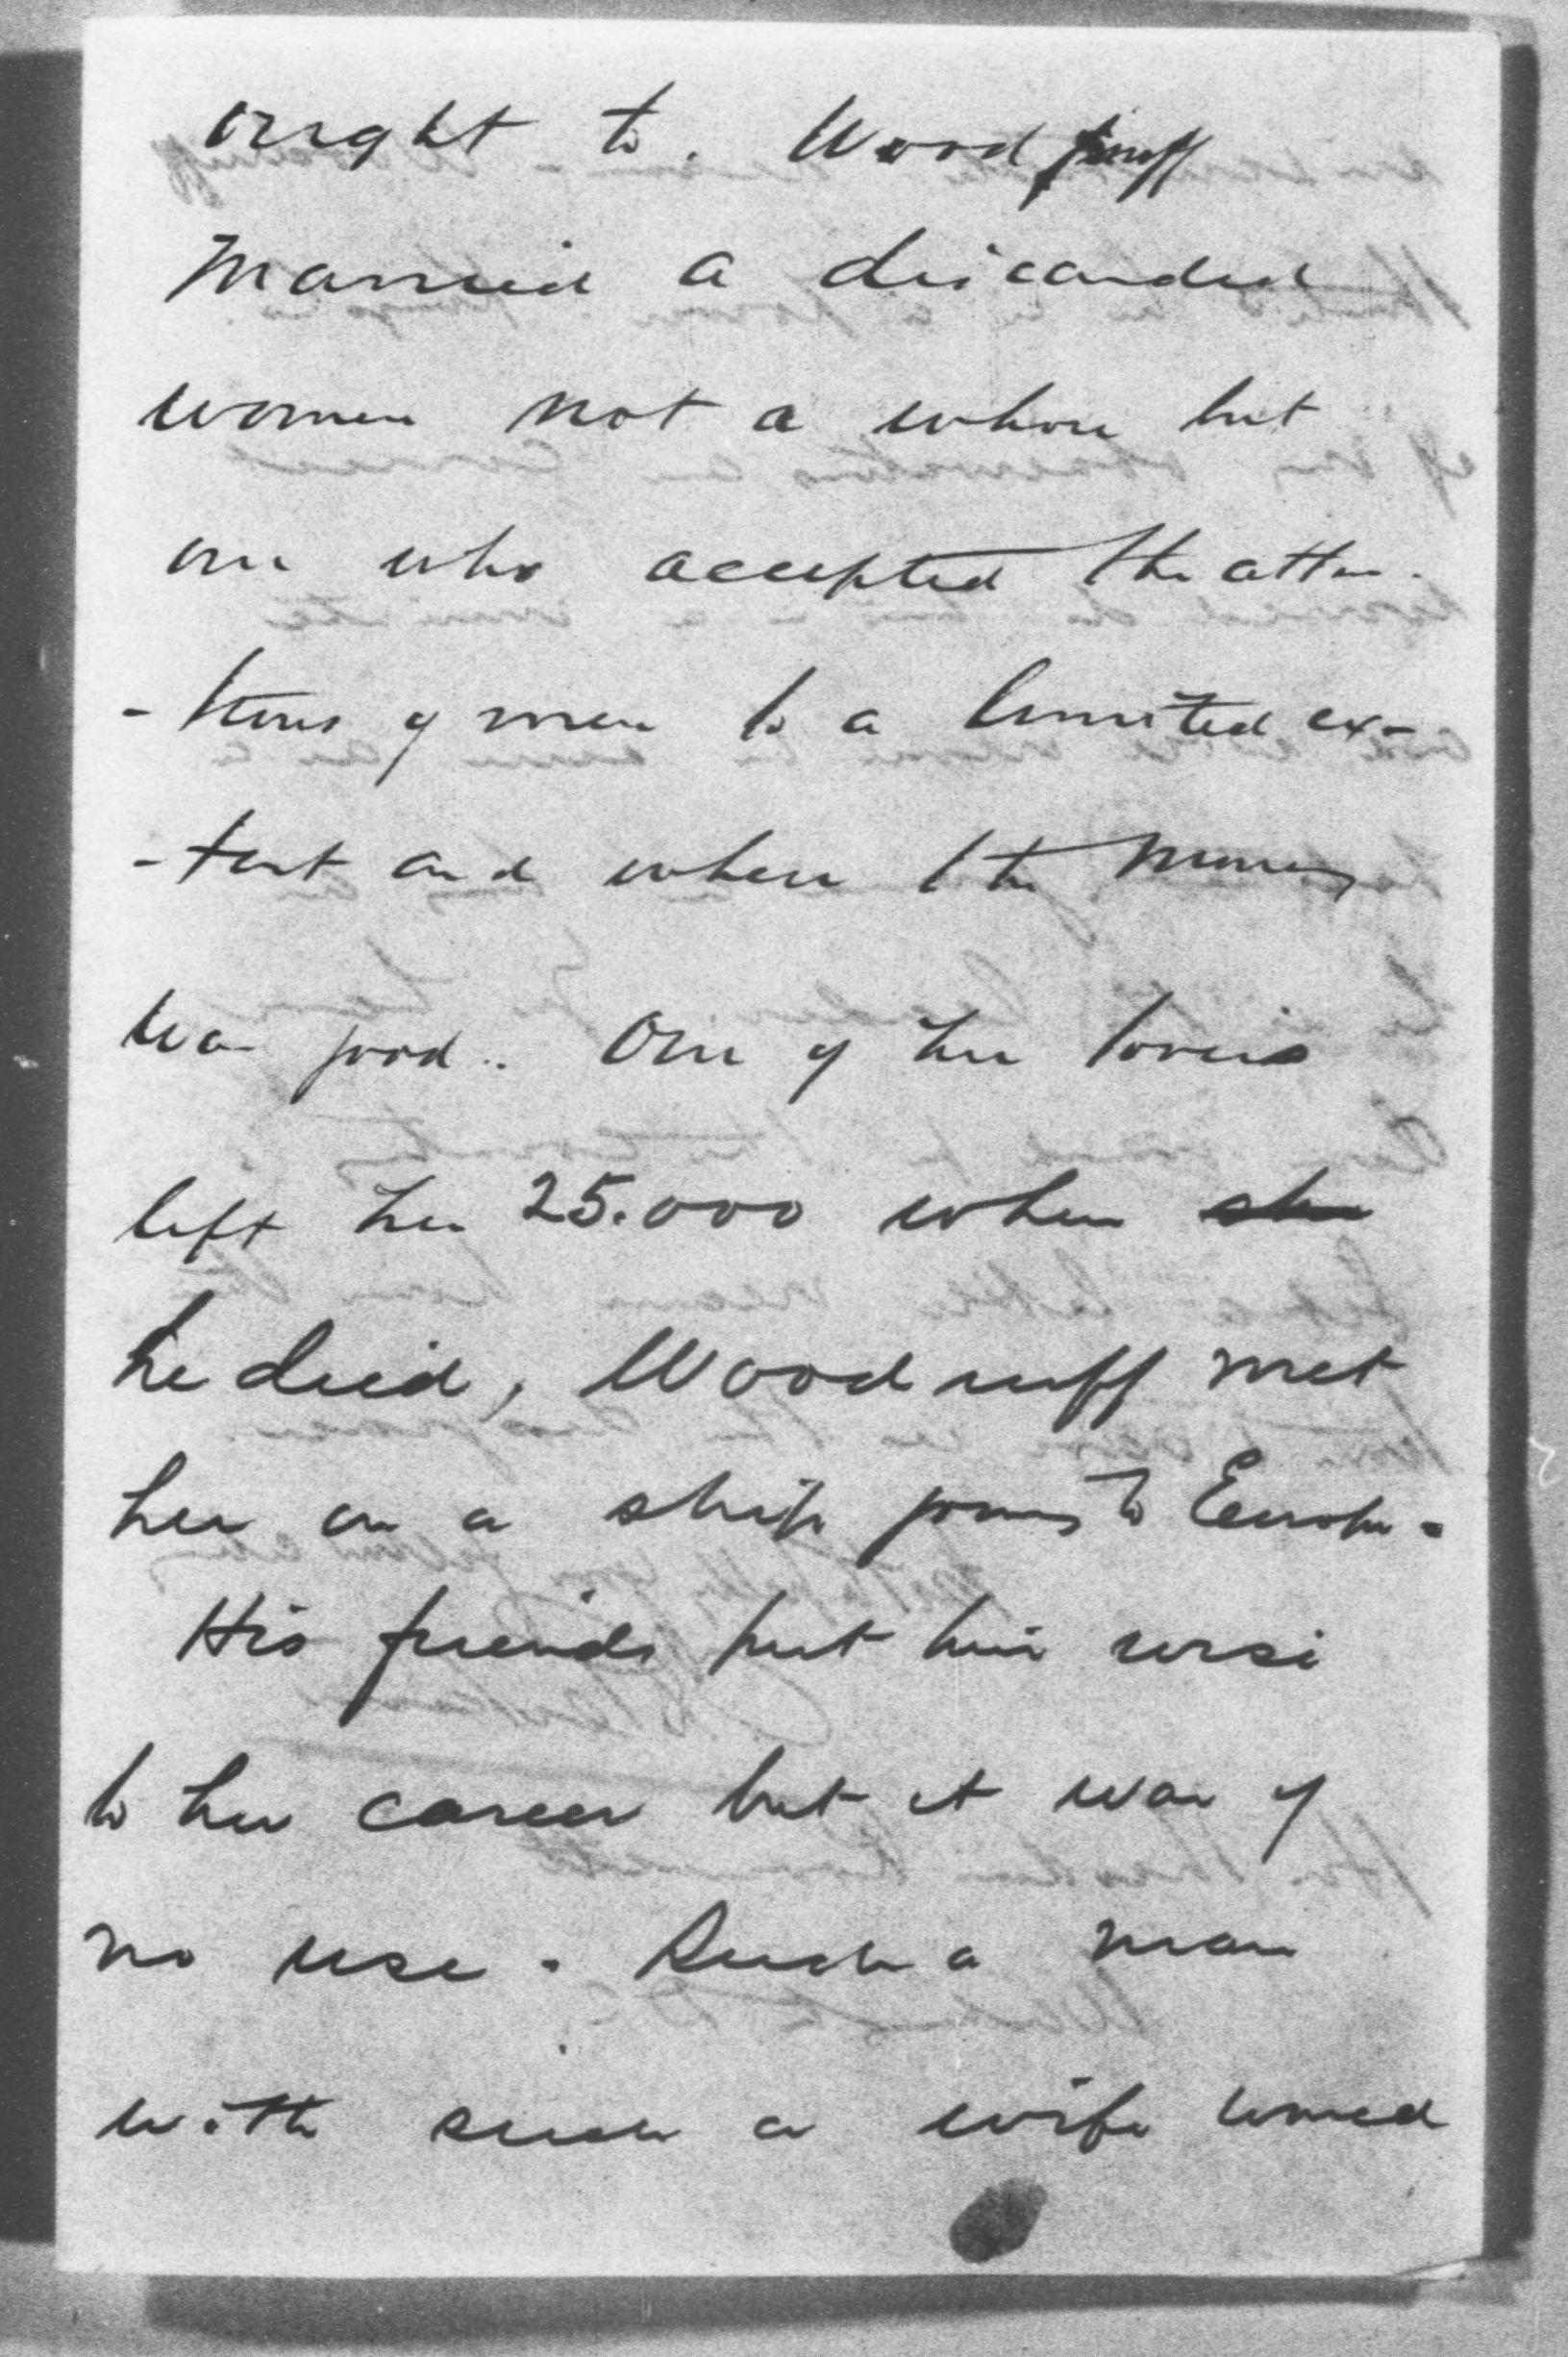 ought to. Woodruff
married a discarded
women not a whore but
one who accepted the atten-
-tions of men to a limited ex-
-tent and where the money
was good. One of her lovers
left her 25.000 when she
he died, Woodruff met
her on a ship going to Europe.
His friends put him wise
to her career but it was of
no use. Such a man
with such a wife would